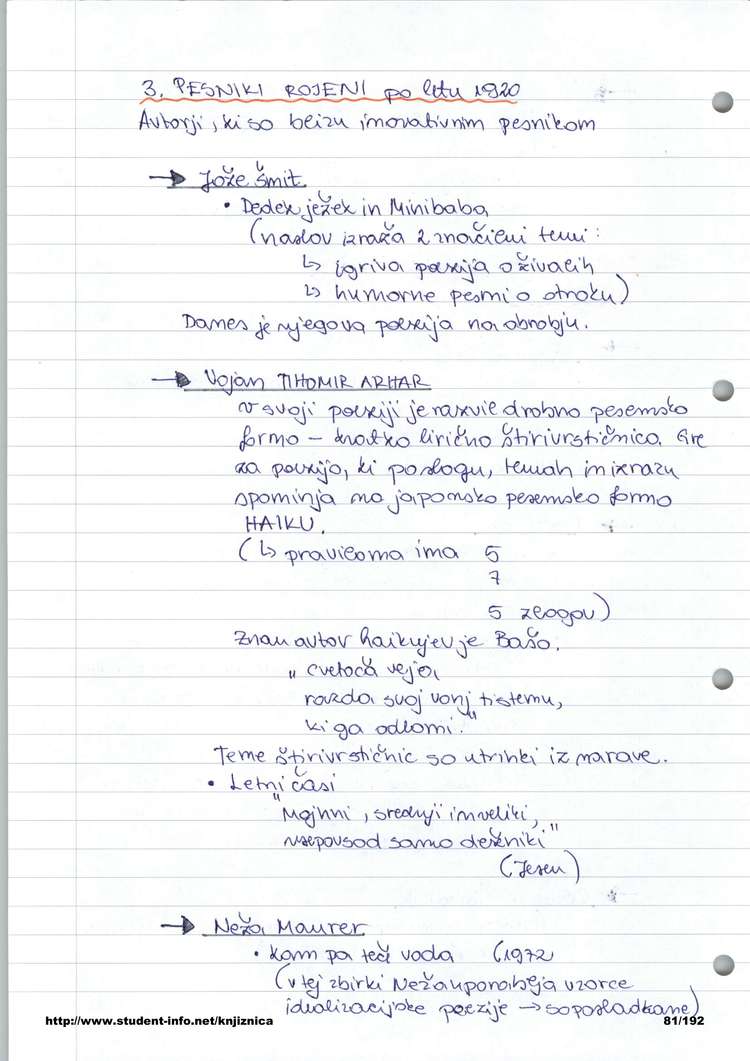 3. PESNIKI ROJENI po letu 1920
Avtorji, ki so blizu inovativnim pesnikom
→ Jože Šmit
• Dedek ježek in Minibaba
(naslov izraža 2 značilni temi:
↳ igriva poezija o živalih
↳ humorne pesmi o otroku)
Danes je njegova poezija na obrobju.
→ Vojan TIHOMIR ARHAR
v svoji poeziji je razvil drobno pesemsko
formo – kratko lirično štirivrstičnico. Gre
za poezijo, ki po slogu, temah in izrazu
spominja na japonsko pesemsko formo
HAIKU.
(↳ praviloma ima 5
7
5 zlogov)
Znan avtor haikujev je Bašo.
"cvetoča veja,
razda svoj vonj tistemu,
ki ga odlomi."
Teme štirivrstičnic so utrinki iz narave.
• Letni časi
"Majhni, srednji in veliki,
vsepovsod samo dežniki"
(Jesen)
→ Neža Maurer
• Kam pa teče voda (1972
(v tej zbirki Neža uporablja vzorce
idealizacijske poezije → so posladkane)
http://www.student-info.net/knjiznica
81/192